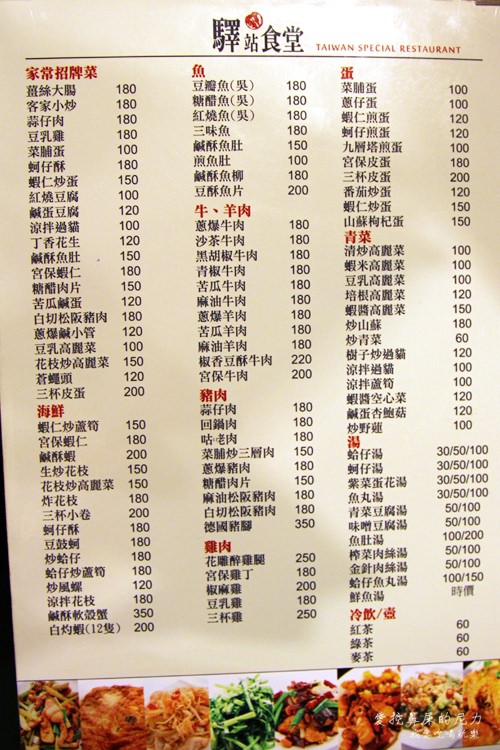 驛站食堂 TAIWAN SPECIAL RESTAURANT
家常招牌菜
薑絲大腸 180
客家小炒 180
蒜仔肉 180
豆乳雞 180
菜脯蛋 100
蚵仔酥 180
蝦仁炒蛋 150
紅燒豆腐 100
鹹蛋豆腐 120
涼拌過貓 100
丁香花生 120
鹹酥魚肚 150
宮保蝦仁 180
糖醋肉片 150
苦瓜鹹蛋 120
白切松阪豬肉 180
蔥爆鹹小管 120
豆乳高麗菜 100
花枝炒高麗菜 150
蒼蠅頭 120
三杯皮蛋 200
海鮮
蝦仁炒蘆筍 150
宮保蝦仁 180
鹹酥蝦 200
生炒花枝 180
花枝炒高麗菜 150
炸花枝 180
三杯小卷 200
蚵仔酥 180
豆鼓蚵 180
炒蛤仔 180
蛤仔炒蘆筍 180
炒風螺 120
涼拌花枝 180
鹹酥軟殼蟹 350
白灼蝦(12隻) 200
魚
豆瓣魚(吳) 180
糖醋魚(吳) 180
紅燒魚(吳) 180
三味魚 180
鹹酥魚肚 150
煎魚肚 100
鹹酥魚柳 180
豆酥魚片 200
牛、羊肉
蔥爆牛肉 180
沙茶牛肉 180
黑胡椒牛肉 180
青椒牛肉 180
苦瓜牛肉 180
麻油牛肉 180
蔥爆羊肉 180
苦瓜羊肉 180
麻油羊肉 180
椒香豆酥牛肉 220
宮保牛肉 200
豬肉
蒜仔肉 180
回鍋肉 180
咕咾肉 180
菜脯炒三層肉 150
蔥爆豬肉 180
糖醋肉片 150
麻油松阪豬肉 180
白切松阪豬肉 180
德國豬腳 350
雞肉
花雕醉雞腿 250
宮保雞丁 180
椒麻雞 200
豆乳雞 180
三杯雞 250
蛋
菜脯蛋 100
蔥仔蛋 100
蝦仁煎蛋 120
蚵仔煎蛋 120
九層塔煎蛋 100
宮保皮蛋 180
三杯皮蛋 200
番茄炒蛋 120
蝦仁炒蛋 150
山蘇枸杞蛋 150
青菜
清炒高麗菜 100
蝦米高麗菜 100
豆乳高麗菜 100
培根高麗菜 120
蝦醬高麗菜 150
炒山蘇 180
炒青菜 60
樹子炒過貓 120
涼拌過貓 100
涼拌蘆筍 100
蝦醬空心菜 120
鹹蛋杏鮑菇 120
炒野蓮 100
湯
蛤仔湯 30/50/100
蚵仔湯 30/50/100
紫菜蛋花湯 30/50/100
魚丸湯 30/50/100
青菜豆腐湯 50/100
味噌豆腐湯 50/100
魚肚湯 100/200
榨菜肉絲湯 50/100
金針肉絲湯 50/100
蛤仔魚丸湯 100/150
鮮魚湯 時價
冷飲/壺
紅茶 60
綠茶 60
麥茶 60
愛挖鼻屎的尼力